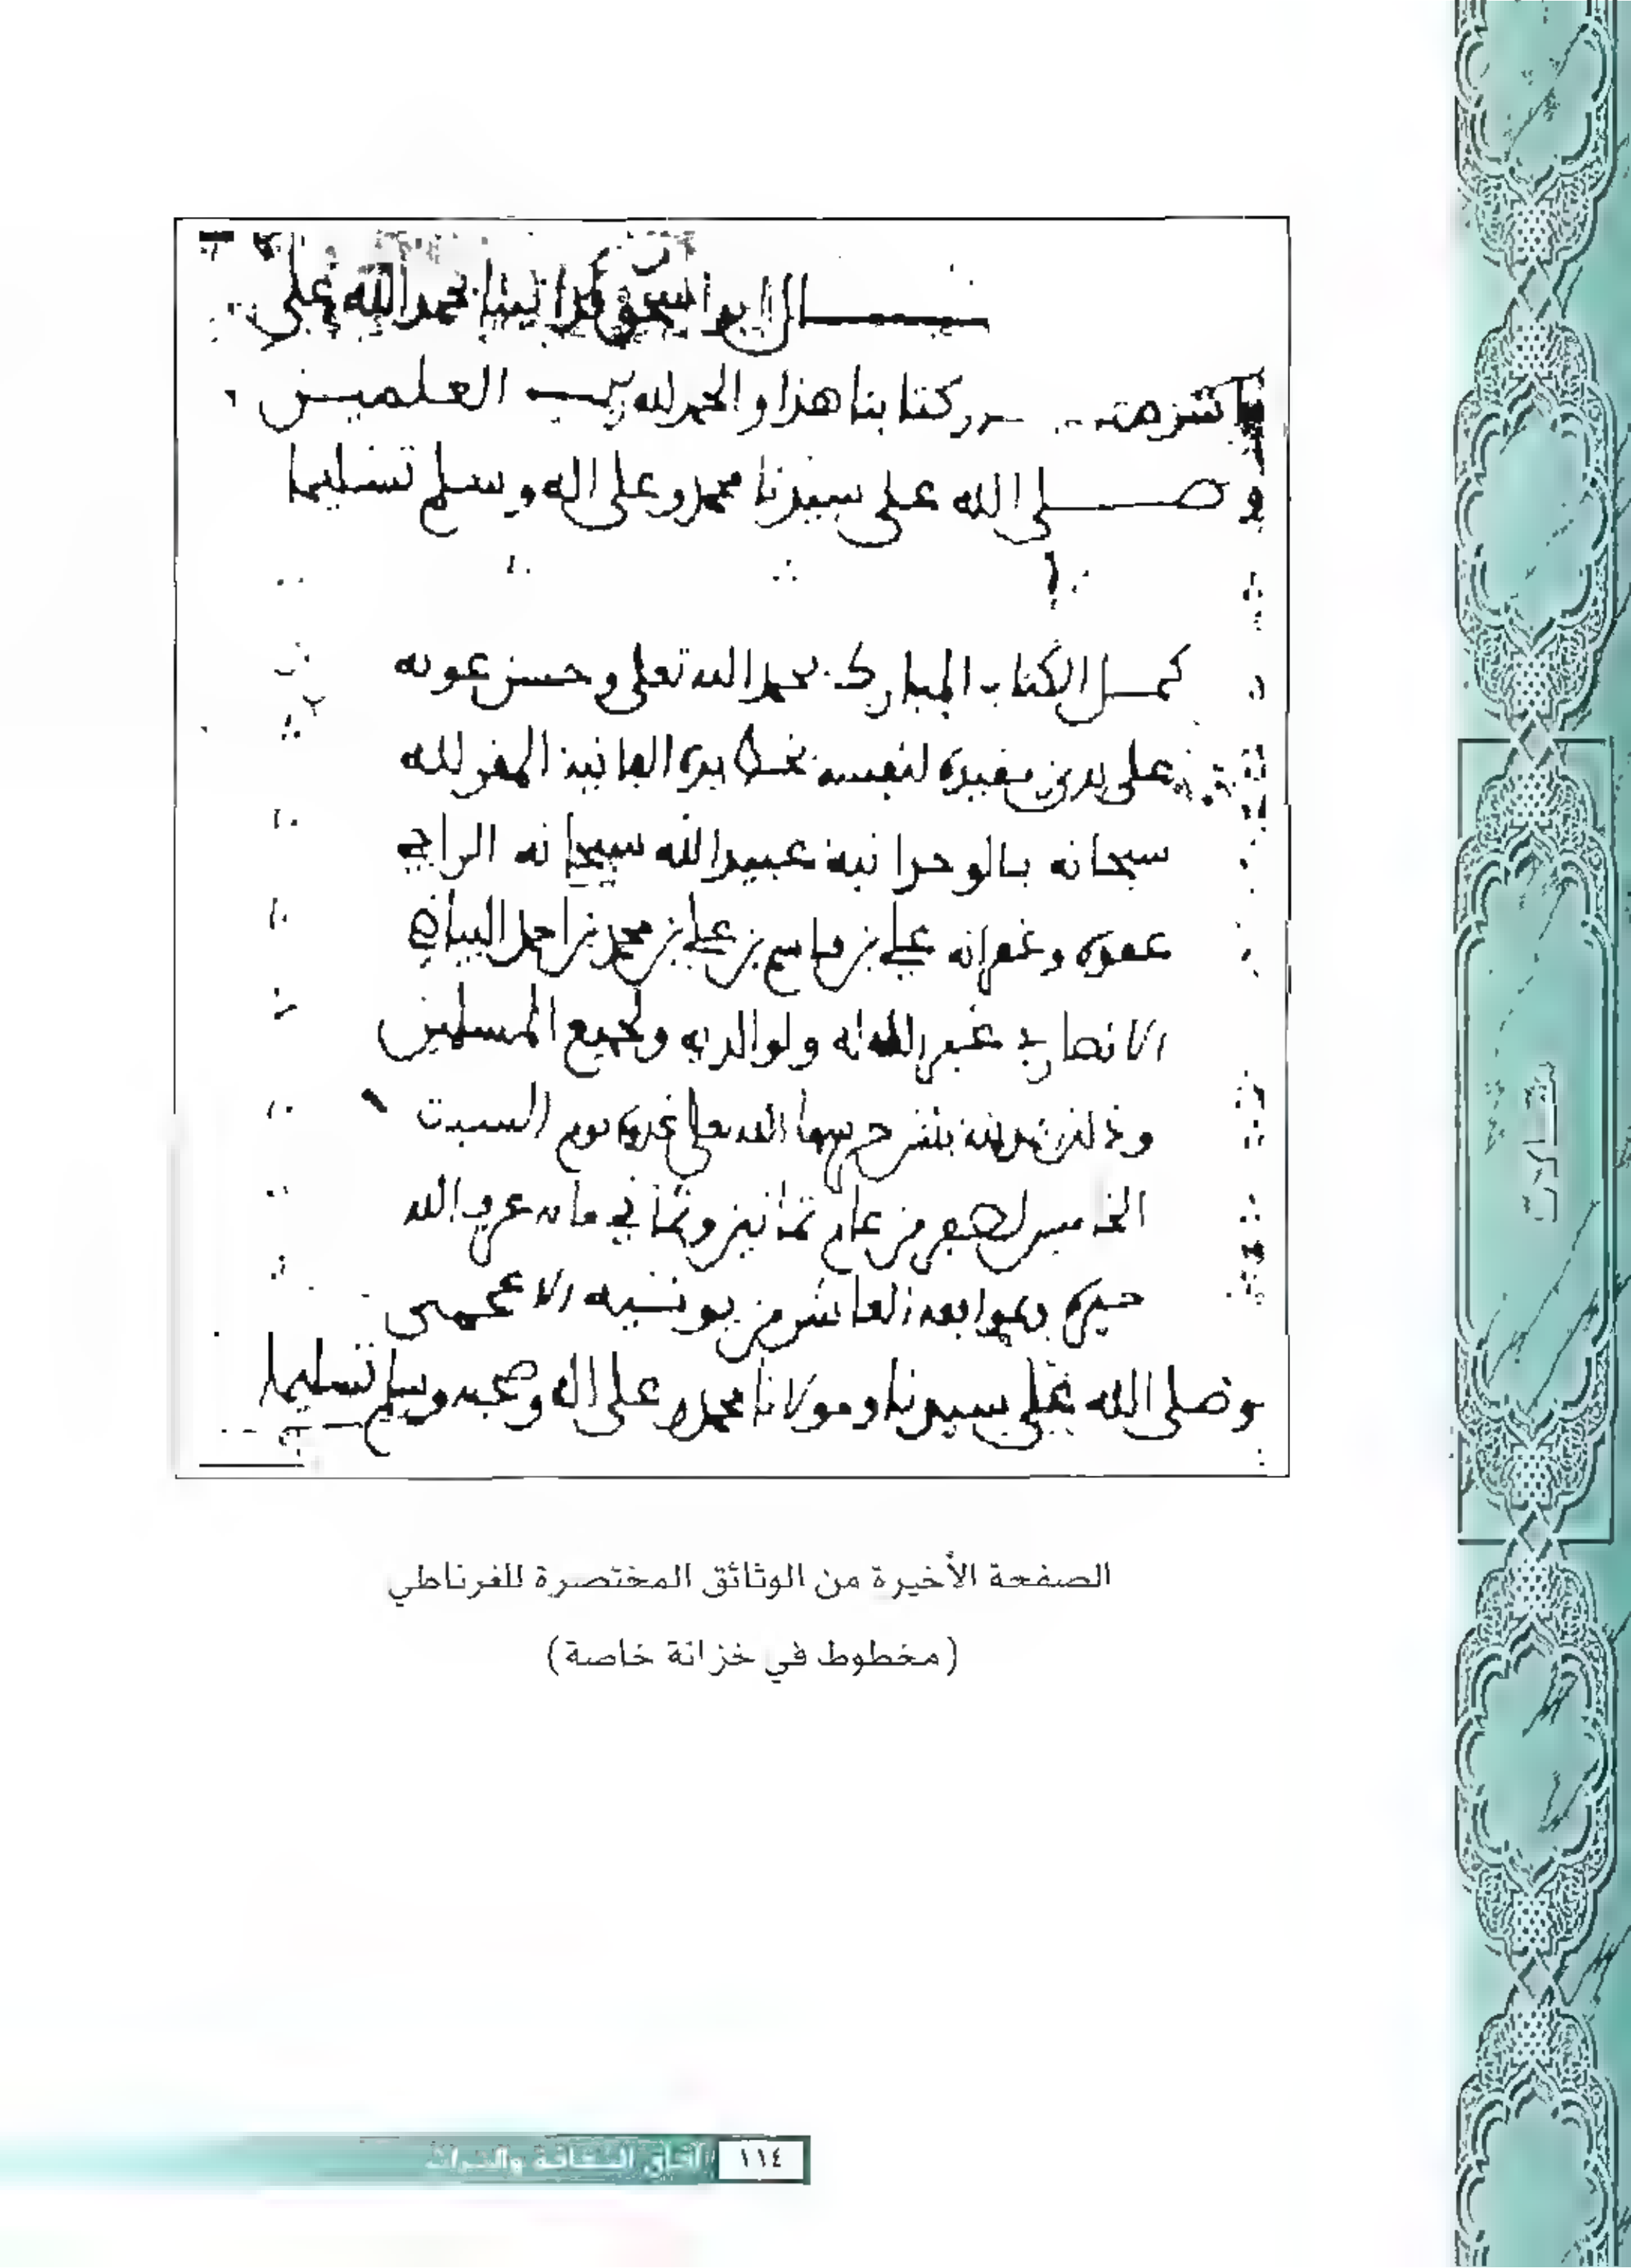 ـال ابو اسحق قد اتينا بحمد الله على
ما شر كتابنا هذا والحمد لله رب العلمين
وصلى الله على سيدنا محمد وعلى اله وسلم تسليما
كمل الكتاب المبارك بحمد الله تعلى وحسن عونه
على يدي مقيده لنفسه بخط يده الفانية المقر لله
سبحانه بالوحدانية عبيد الله سبحانه الراجي
عفوه وغفرانه علي بن قاسم بن علي بن محمد بن احمد البياني
الانصاري غفر الله له ولوالديه ولجميع المسلمين
وذلك بمدينة حرسها الله تعلى يوم السبت
الخامس لصفر من عام ثمانين وثماني ماية عرف الله
خيره وبموافقة العاشر من يونيه الاعجمى
وصلى الله على سيدنا ومولانا محمد وعلى اله وصحبه وسلم تسليما
الصفحة الأخيرة من الوثائق المختصرة للغرناطي
(مخطوط في خزانة خاصة)
آفاق الثقافة والتراث ١١٤